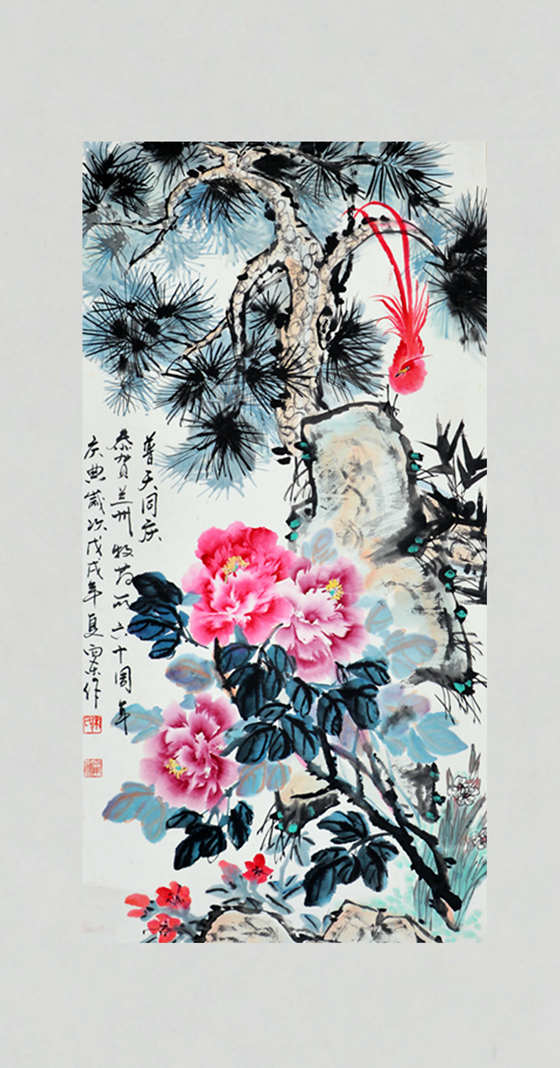 普天同庆
恭贺兰州牧药所六十周年
庆典岁次戊戌年夏 作